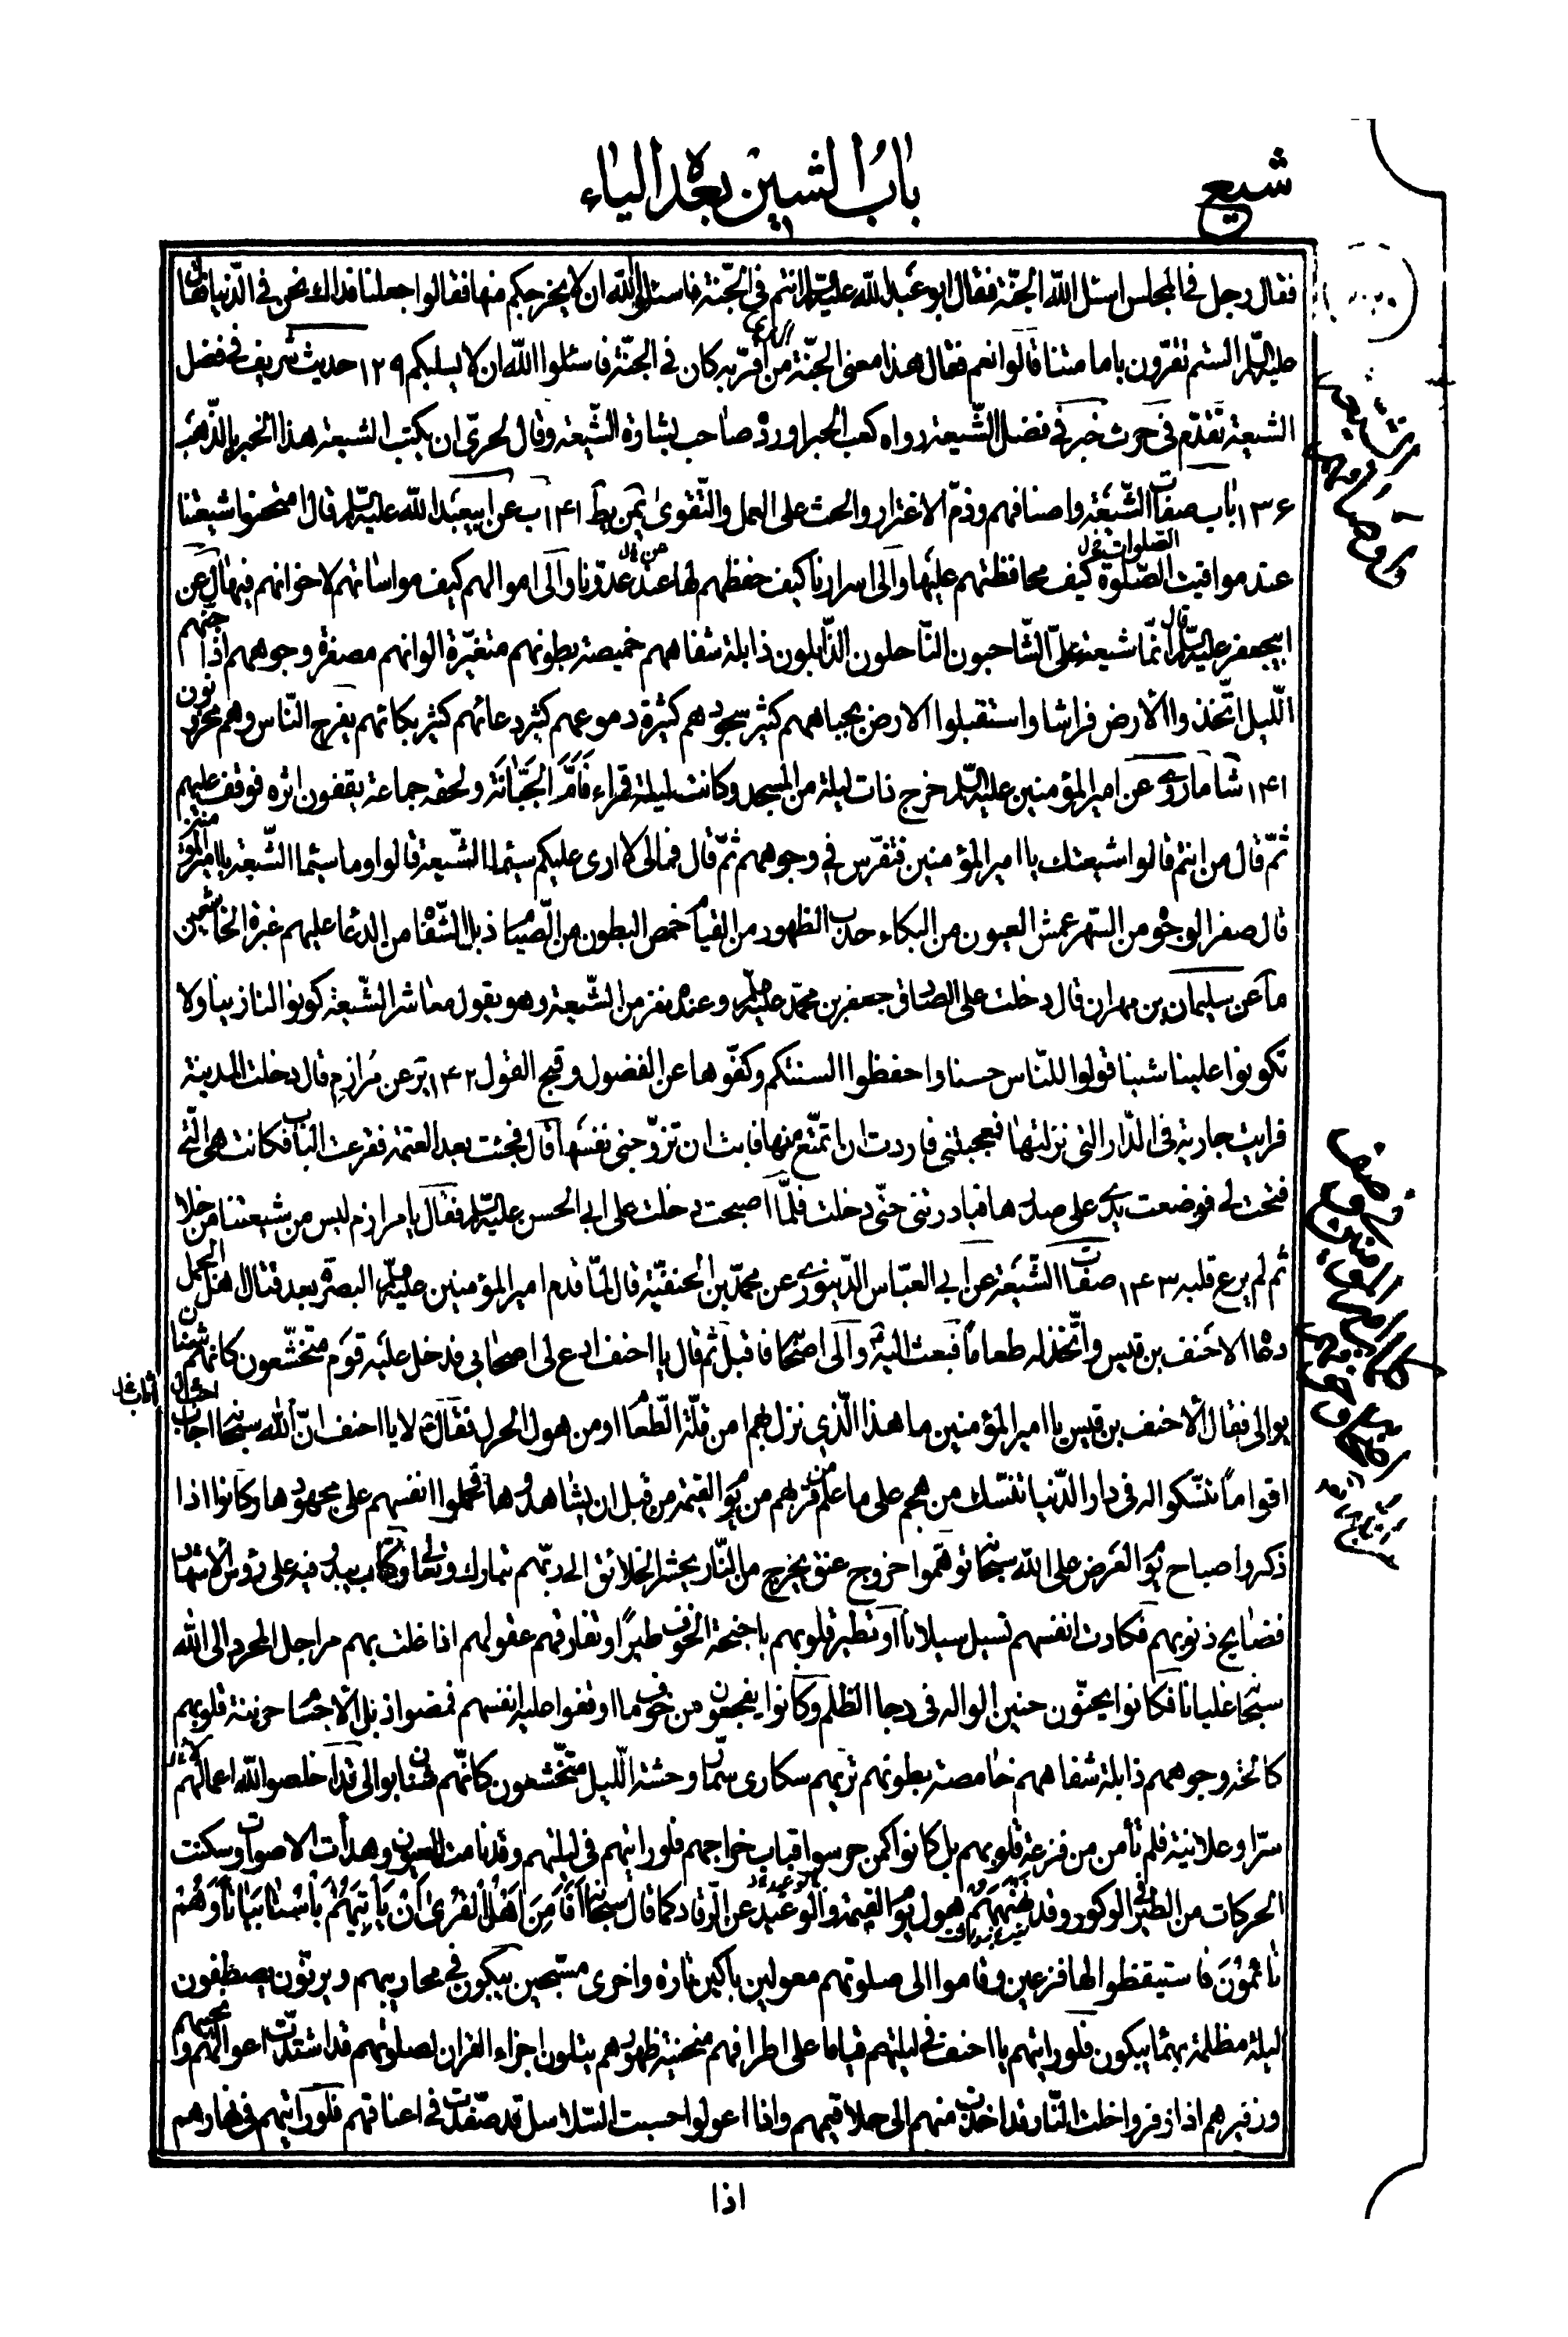 شيع
باب الشين بعده الياء
فقال رجل في المجلس اسئل الله الجنّة فقال ابو عبد الله عليه السلام انتم في الجنّة فاسئلوا الله ان لا يخرجكم منها فقالوا جعلنا فداك نحن في الدّنيا فقال
عليه السلام الستم تقرّون بامامتنا قالوا نعم فقال هذا معنى الجنّة من اقرّ به كان في الجنّة فاسئلوا الله ان لا يسلبكم ١٢٩ حديث شريف في فضل
الشيعة تقدّم في حرث خبر في فضل الشّيعة رواه كعب الحبر اورده صاحب بشارة الشّيعة وقال لحريّ ان يكتب الشيعة هذا الخبر بالذّهب
١٣۶ باب صفات الشّيعة واصنافهم وذمّ الاغترار والحث على العمل والتّقوى يمن يط ١۴١ ب عن ابيعبد الله عليه السلام قال امتحنوا شيعتنا
عند مواقيت الصّلوة كيف محافظتهم عليها والى اسرارنا كيف حفظهم لها عند عدوّنا والى اموالهم كيف مواساتهم لاخوانهم فيها ل عن
ابيجعفر عليه السلام قال انّما شيعة علىّ الشّاحبون النّاحلون الذّابلون ذابلة شفاههم خميصة بطونهم متغيّرة الوانهم مصفرة وجوههم اذا جنّهم
اللّيل اتّخذوا الأرض فراشا واستقبلوا الارض بجباههم كثير سجودهم كثيرة دموعهم كثير دعائهم كثير بكائهم يفرح النّاس وهم محزونون
١۴١ شا ما روي عن امير المؤمنين عليه السلام خرج ذات ليلة من المسجد وكانت ليلة قمراء فأمّ الجبّانة ولحقه جماعة يقفون اثره فوقف عليهم
ثمّ قال من انتم قالوا شيعتك يا امير المؤمنين فتفرّس في وجوههم ثمّ قال فمالى لا ارى عليكم سيماء الشّيعة قالوا وما سيماء الشّيعة يا امير المؤمنين
قال صفر الوجوه من السّهر عمش العيون من البكاء حدب الظهور من القيام خمص البطون من الصّيام ذبل الشّفاه من الدعاء عليهم غبرة الخاشعين
ما عن سليمان بن مهران قال دخلت على الصادق جعفر بن محمّد عليه السلام وعنده نفر من الشّيعة وهو يقول معاشر الشّيعة كونوا لنا زينا ولا
تكونوا علينا شينا قولوا للنّاس حسنا واحفظوا السنتكم وكفّوها عن الفضول وقبح القول ١۴٢ ير عن مُرازم قال دخلت المدينة
فرايت جارية في الدّار التي نزلتها فعجبتني فاردت ان اتمتّع منها فابت ان تزوّجني نفسها قال فجئت بعد العتمة فقرعت الباب فكانت هي الّتي
فتحت لي فوضعت يدي على صدرها فبادرتني حتّى دخلت فلمّا اصبحت دخلت على ابي الحسن عليه السلام فقال يا مرازم ليس من شيعتنا من خلا
ثم لم يرع قلبه ١۴٣ صفات الشّيعة عن ابي العبّاس الدّينوري عن محمّد بن الحنفيّة قال لمّا قدم امير المؤمنين عليه السلام البصرة بعد قتال اهل الجمل
دعاه الاحنف بن قيس واتّخذ له طعاما فبعث اليه والى اصحابه فاقبل ثم قال يا احنف ادع لى اصحابي فدخل عليه قوم متخشّعون كانهم شنان
بوالى فقال الاحنف بن قيس يا امير المؤمنين ما هذا الّذي نزل بهم امن قلّة الطّعام او من هول الحرب فقال لا يا احنف انّ الله سبحانه اجاب
اقواما تنسّكوا له في دار الدّنيا تنسّك من هجم على ما علم من قربهم من يوم القيمة من قبل ان يشاهدوها فحملوا انفسهم على مجهودها وكانوا اذا
ذكروا صباح يوم العرض على الله سبحانه توهّموا خروج عنق يخرج من النّار يحشر الخلائق الى ربّهم تبارك وتعالى وكتاب يبدو فيه على رؤس الاشهاد
فضايح ذنوبهم فكادت انفسهم تسيل سيلانا او تطير قلوبهم باجنحة الخوف طيرًا وتفارقهم عقولهم اذا غلت بهم مراجل المجرد الى الله
سبحانه غليانا فكانوا يحنّون حنين الواله في دجا الظلم وكانوا يفجعون من خوف ما اوقفوا عليه انفسهم فمضوا ذبل الاجسام حزينة قلوبهم
كالحة وجوههم ذابلة شفاههم خامصة بطونهم تريهم سكارى سمّار وحشة اللّيل متخشعون كانّهم شنان بوالى قد اخلصوا لله اعمالهم
سرّا وعلانية فلم تأمن من فزعة قلوبهم بل كانوا كمن حرسوا قباب خراجهم فلو رايتهم في ليلتهم وقد نامت العيون وهدأت الاصوات وسكنت
الحركات من الطير في الوكور وقد نهنههم هول يوم القيمة والوعيد عن الرّقاد كما قال سبحانه اَفَاَمِنَ اَهْلُ الْقُرىٰ اَنْ يَأْتِيَهُمْ بَأْسُنٰا بَيٰاتًا وَهُمْ
نٰائِمُوْنَ فاستيقظوا لها فزعين وقاموا الى صلوتهم معولين باكين تارة واخرى مسبّحين يبكون في محاريبهم ويرنّون يصطفّون
ليلة مظلمة بهماء يبكون فلو رايتهم يا احنف في ليلتهم قياما على اطرافهم منحنية ظهورهم يتلون اجزاء القران لصلوتهم قد اشتدّت اعوالهم ونحيبهم
وزفيرهم اذا زفروا خلت النّار قد اخذت منهم الى حلاقيمهم واذا اعولوا حسبت السّلاسل قد صفّدت في اعناقهم فلو رايتهم في نهارهم
اذا